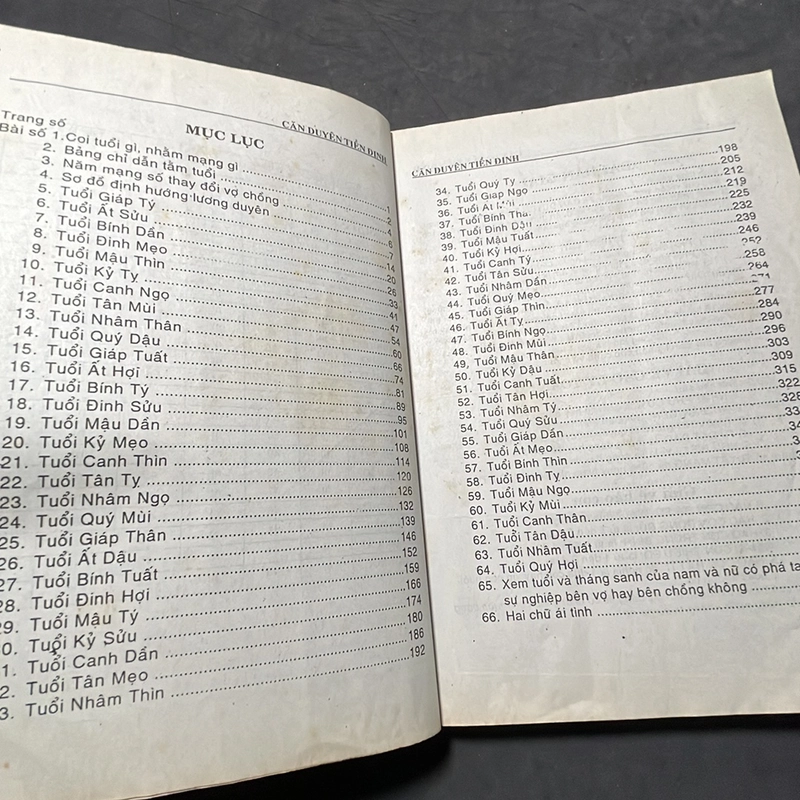 CĂN DUYÊN TIỀN ĐỊNH
MỤC LỤC
Trang số
Bài số 1. Coi tuổi gì, nhằm mạng gì ........ 1
2. Bảng chỉ dẫn tằm tuổi ........ 2
3. Năm mạng số thay đổi vợ chồng ........ 4
4. Sơ đồ định hướng lương duyên ........ 6
5. Tuổi Giáp Tý ........ 7
6. Tuổi Ất Sửu ........ 14
7. Tuổi Bính Dần ........ 20
8. Tuổi Đinh Mẹo ........ 26
9. Tuổi Mậu Thìn ........ 33
10. Tuổi Kỷ Tỵ ........ 41
11. Tuổi Canh Ngọ ........ 47
12. Tuổi Tân Mùi ........ 54
13. Tuổi Nhâm Thân ........ 60
14. Tuổi Quý Dậu ........ 66
15. Tuổi Giáp Tuất ........ 74
16. Tuổi Ất Hợi ........ 81
17. Tuổi Bính Tý ........ 89
18. Tuổi Đinh Sửu ........ 95
19. Tuổi Mậu Dần ........ 101
20. Tuổi Kỷ Mẹo ........ 108
21. Tuổi Canh Thìn ........ 114
22. Tuổi Tân Tỵ ........ 120
23. Tuổi Nhâm Ngọ ........ 126
24. Tuổi Quý Mùi ........ 132
25. Tuổi Giáp Thân ........ 139
26. Tuổi Ất Dậu ........ 146
27. Tuổi Bính Tuất ........ 152
28. Tuổi Đinh Hợi ........ 159
29. Tuổi Mậu Tý ........ 166
0. Tuổi Kỷ Sửu ........ 174
1. Tuổi Canh Dần ........ 180
2. Tuổi Tân Mẹo ........ 186
3. Tuổi Nhâm Thìn ........ 192
CĂN DUYÊN TIỀN ĐỊNH
34. Tuổi Quý Tỵ ........ 198
35. Tuổi Giáp Ngọ ........ 205
36. Tuổi Ất Mùi ........ 212
37. Tuổi Bính Thân ........ 219
38. Tuổi Đinh Dậu ........ 225
39. Tuổi Mậu Tuất ........ 232
40. Tuổi Kỷ Hợi ........ 239
41. Tuổi Canh Tý ........ 246
42. Tuổi Tân Sửu ........ 252
43. Tuổi Nhâm Dần ........ 258
44. Tuổi Quý Mẹo ........ 264
45. Tuổi Giáp Thìn ........ 271
46. Tuổi Ất Tỵ ........ 277
47. Tuổi Bính Ngọ ........ 284
48. Tuổi Đinh Mùi ........ 290
49. Tuổi Mậu Thân ........ 296
50. Tuổi Kỷ Dậu ........ 303
51. Tuổi Canh Tuất ........ 309
52. Tuổi Tân Hợi ........ 315
53. Tuổi Nhâm Tý ........ 322
54. Tuổi Quý Sửu ........ 328
55. Tuổi Giáp Dần ........ 33
56. Tuổi Ất Mẹo ........ 34
57. Tuổi Bính Thìn ........
58. Tuổi Đinh Tỵ ........
59. Tuổi Mậu Ngọ ........
60. Tuổi Kỷ Mùi ........
61. Tuổi Canh Thân ........
62. Tuổi Tân Dậu ........
63. Tuổi Nhâm Tuất ........
64. Tuổi Quý Hợi ........
65. Xem tuổi và tháng sanh của nam và nữ có phá ta
sự nghiệp bên vợ hay bên chồng không ........
66. Hai chữ ái tình ........